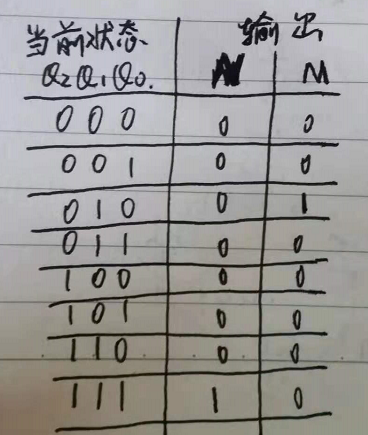 当前状态 输出
Q₂Q₁Q₀. N M
0 0 0 0 0
0 0 1 0 0
0 1 0 0 1
0 1 1 0 0
1 0 0 0 0
1 0 1 0 0
1 1 0 0 0
1 1 1 1 0